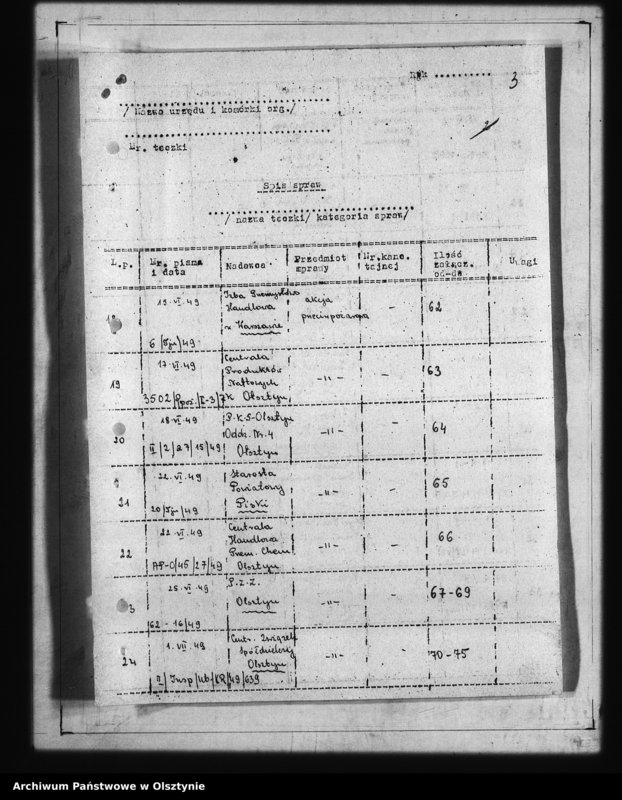 Rok ..........
3
/ Nazwa urzędu i komórki org./
Nr. teczki
Spis spraw
/ nazwa teczki/ kategoria spraw/
L.p. Nr. pisma i data Nadawca Przedmiot sprawy Nr.kanc. tajnej Ilość załącz. od-do Uwagi
18 19.VI.49 Izba Przemysłowo Handlowa w Warszawie akcja przeciwpożarowa - 62
6/Tjn/49
19 17.VI.49 Centrala Produktów Naftowych Olsztyn -"- - 63
3502/Ppoż./I-3/ZK
20 18.VI.49 P.K.S-Olsztyn Oddz. Nr.4 Olsztyn -"- - 64
II/2/27/15/49
21 22.VI.49 Starosta Powiatowy Piski -"- - 65
20/Tjn/49
22 22.VI.49 Centrala Handlowa Przem. Chem. Olsztyn -"- - 66
AP-0/45/27/49
3 25.VI.49 P.Z.Z. Olsztyn -"- - 67-69
62-16/49
24 1.VII.49 Centr. Związek Spółdzielczy Olsztyn -"- - 70-75
/Insp/Ub/KR/49/639
Archiwum Państwowe w Olsztynie